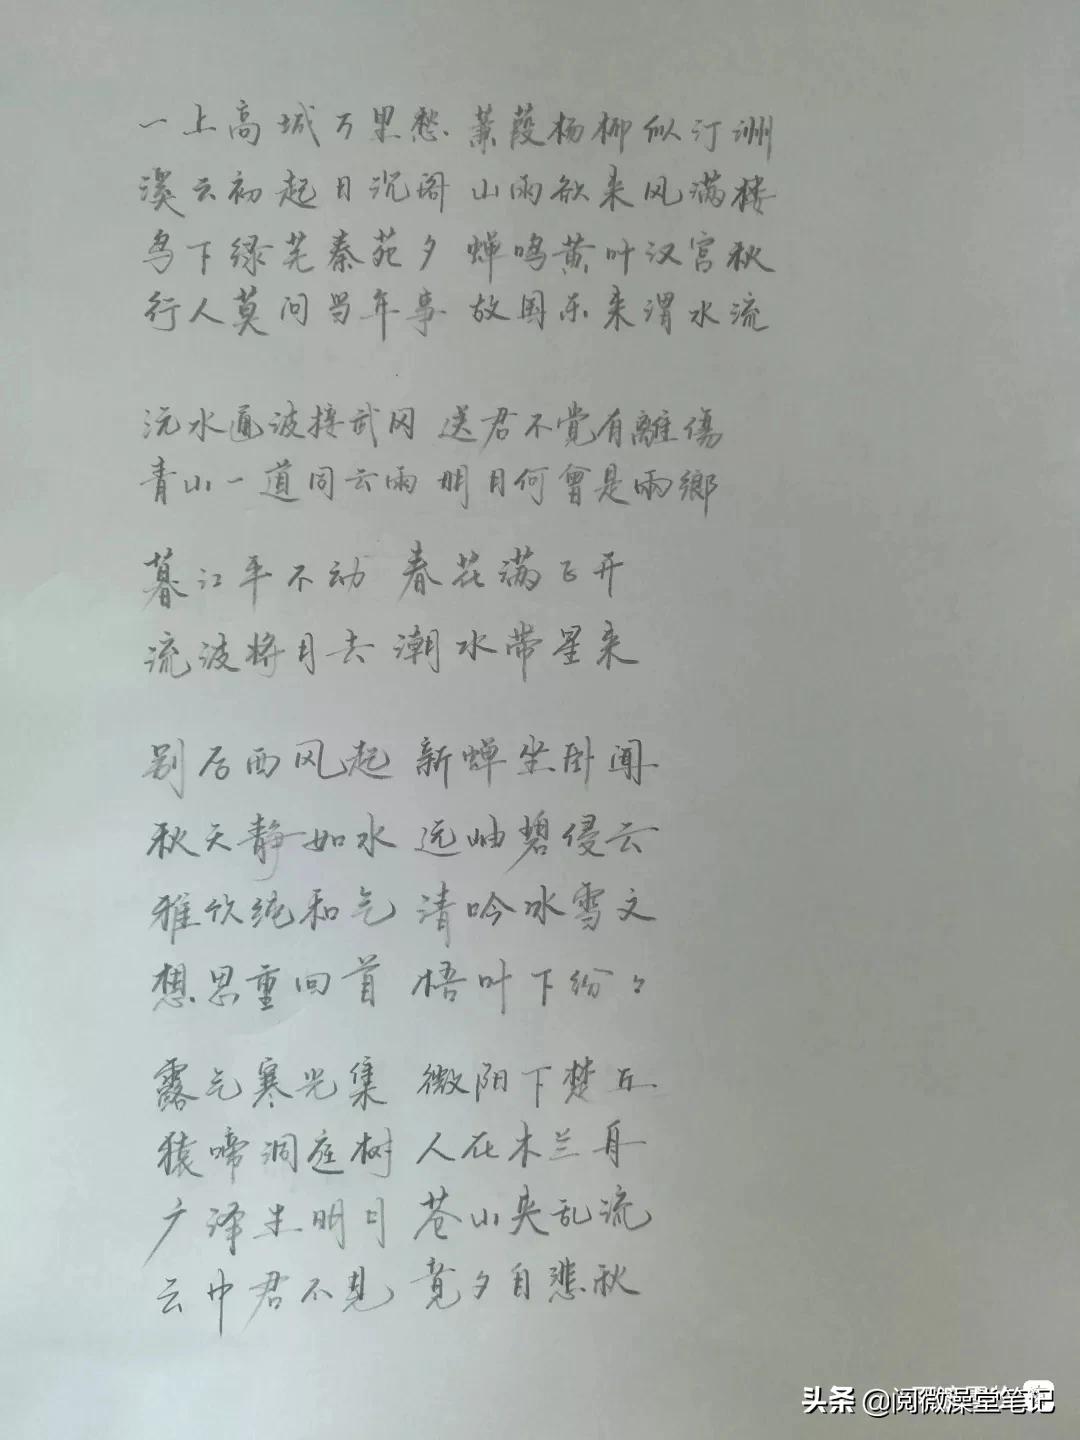 一上高城万里愁 蒹葭杨柳似汀洲
溪云初起日沉阁 山雨欲来风满楼
鸟下绿芜秦苑夕 蝉鸣黄叶汉宫秋
行人莫问当年事 故国东来渭水流
沅水通波接武冈 送君不觉有離傷
青山一道同云雨 明月何曾是兩鄉
暮江平不动 春花满飞开
流波将月去 潮水带星来
别后西风起 新蝉坐卧闻
秋天静如水 远岫碧侵云
雅饮纯和气 清吟冰雪文
想思重回首 梧叶下纷々
露气寒光集 微阳下楚丘
猿啼洞庭树 人在木兰舟
广泽生明月 苍山夹乱流
云中君不見 竟夕自悲秋
头条 @阅微澡堂笔记